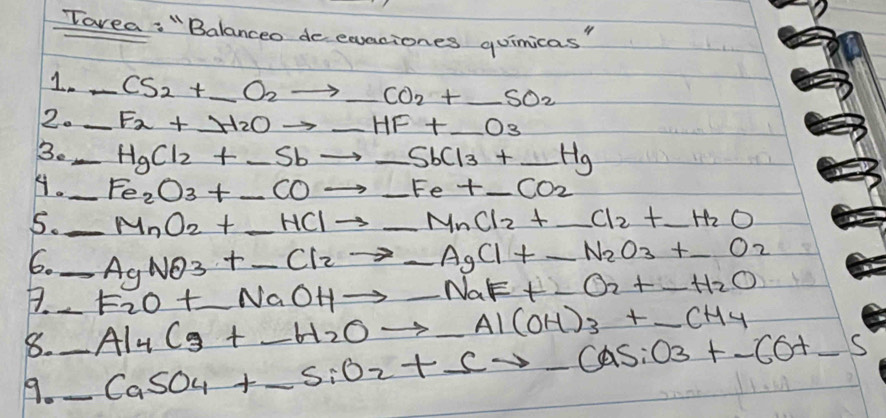 Tarea: "Balanceo de ecuaciones químicas"
1. _ CS2 + _ O2 → _ CO2 + _ SO2
2. _ F2 + _ H2O → _ HF + _ O3
3. _ HgCl2 + _ Sb → _ SbCl3 + _ Hg
4. _ Fe2O3 + _ CO → _ Fe + _ CO2
5. _ MnO2 + _ HCl → _ MnCl2 + _ Cl2 + _ H2O
6. _ AgNO3 + _ Cl2 → _ AgCl + _ N2O3 + _ O2
7. _ F2O + _ NaOH → _ NaF + _ O2 + _ H2O
8. _ Al4C3 + _ H2O → _ Al(OH)3 + _ CH4
9. _ CaSO4 + _ SiO2 + _ C → _ CaSiO3 + _ CO + _ S